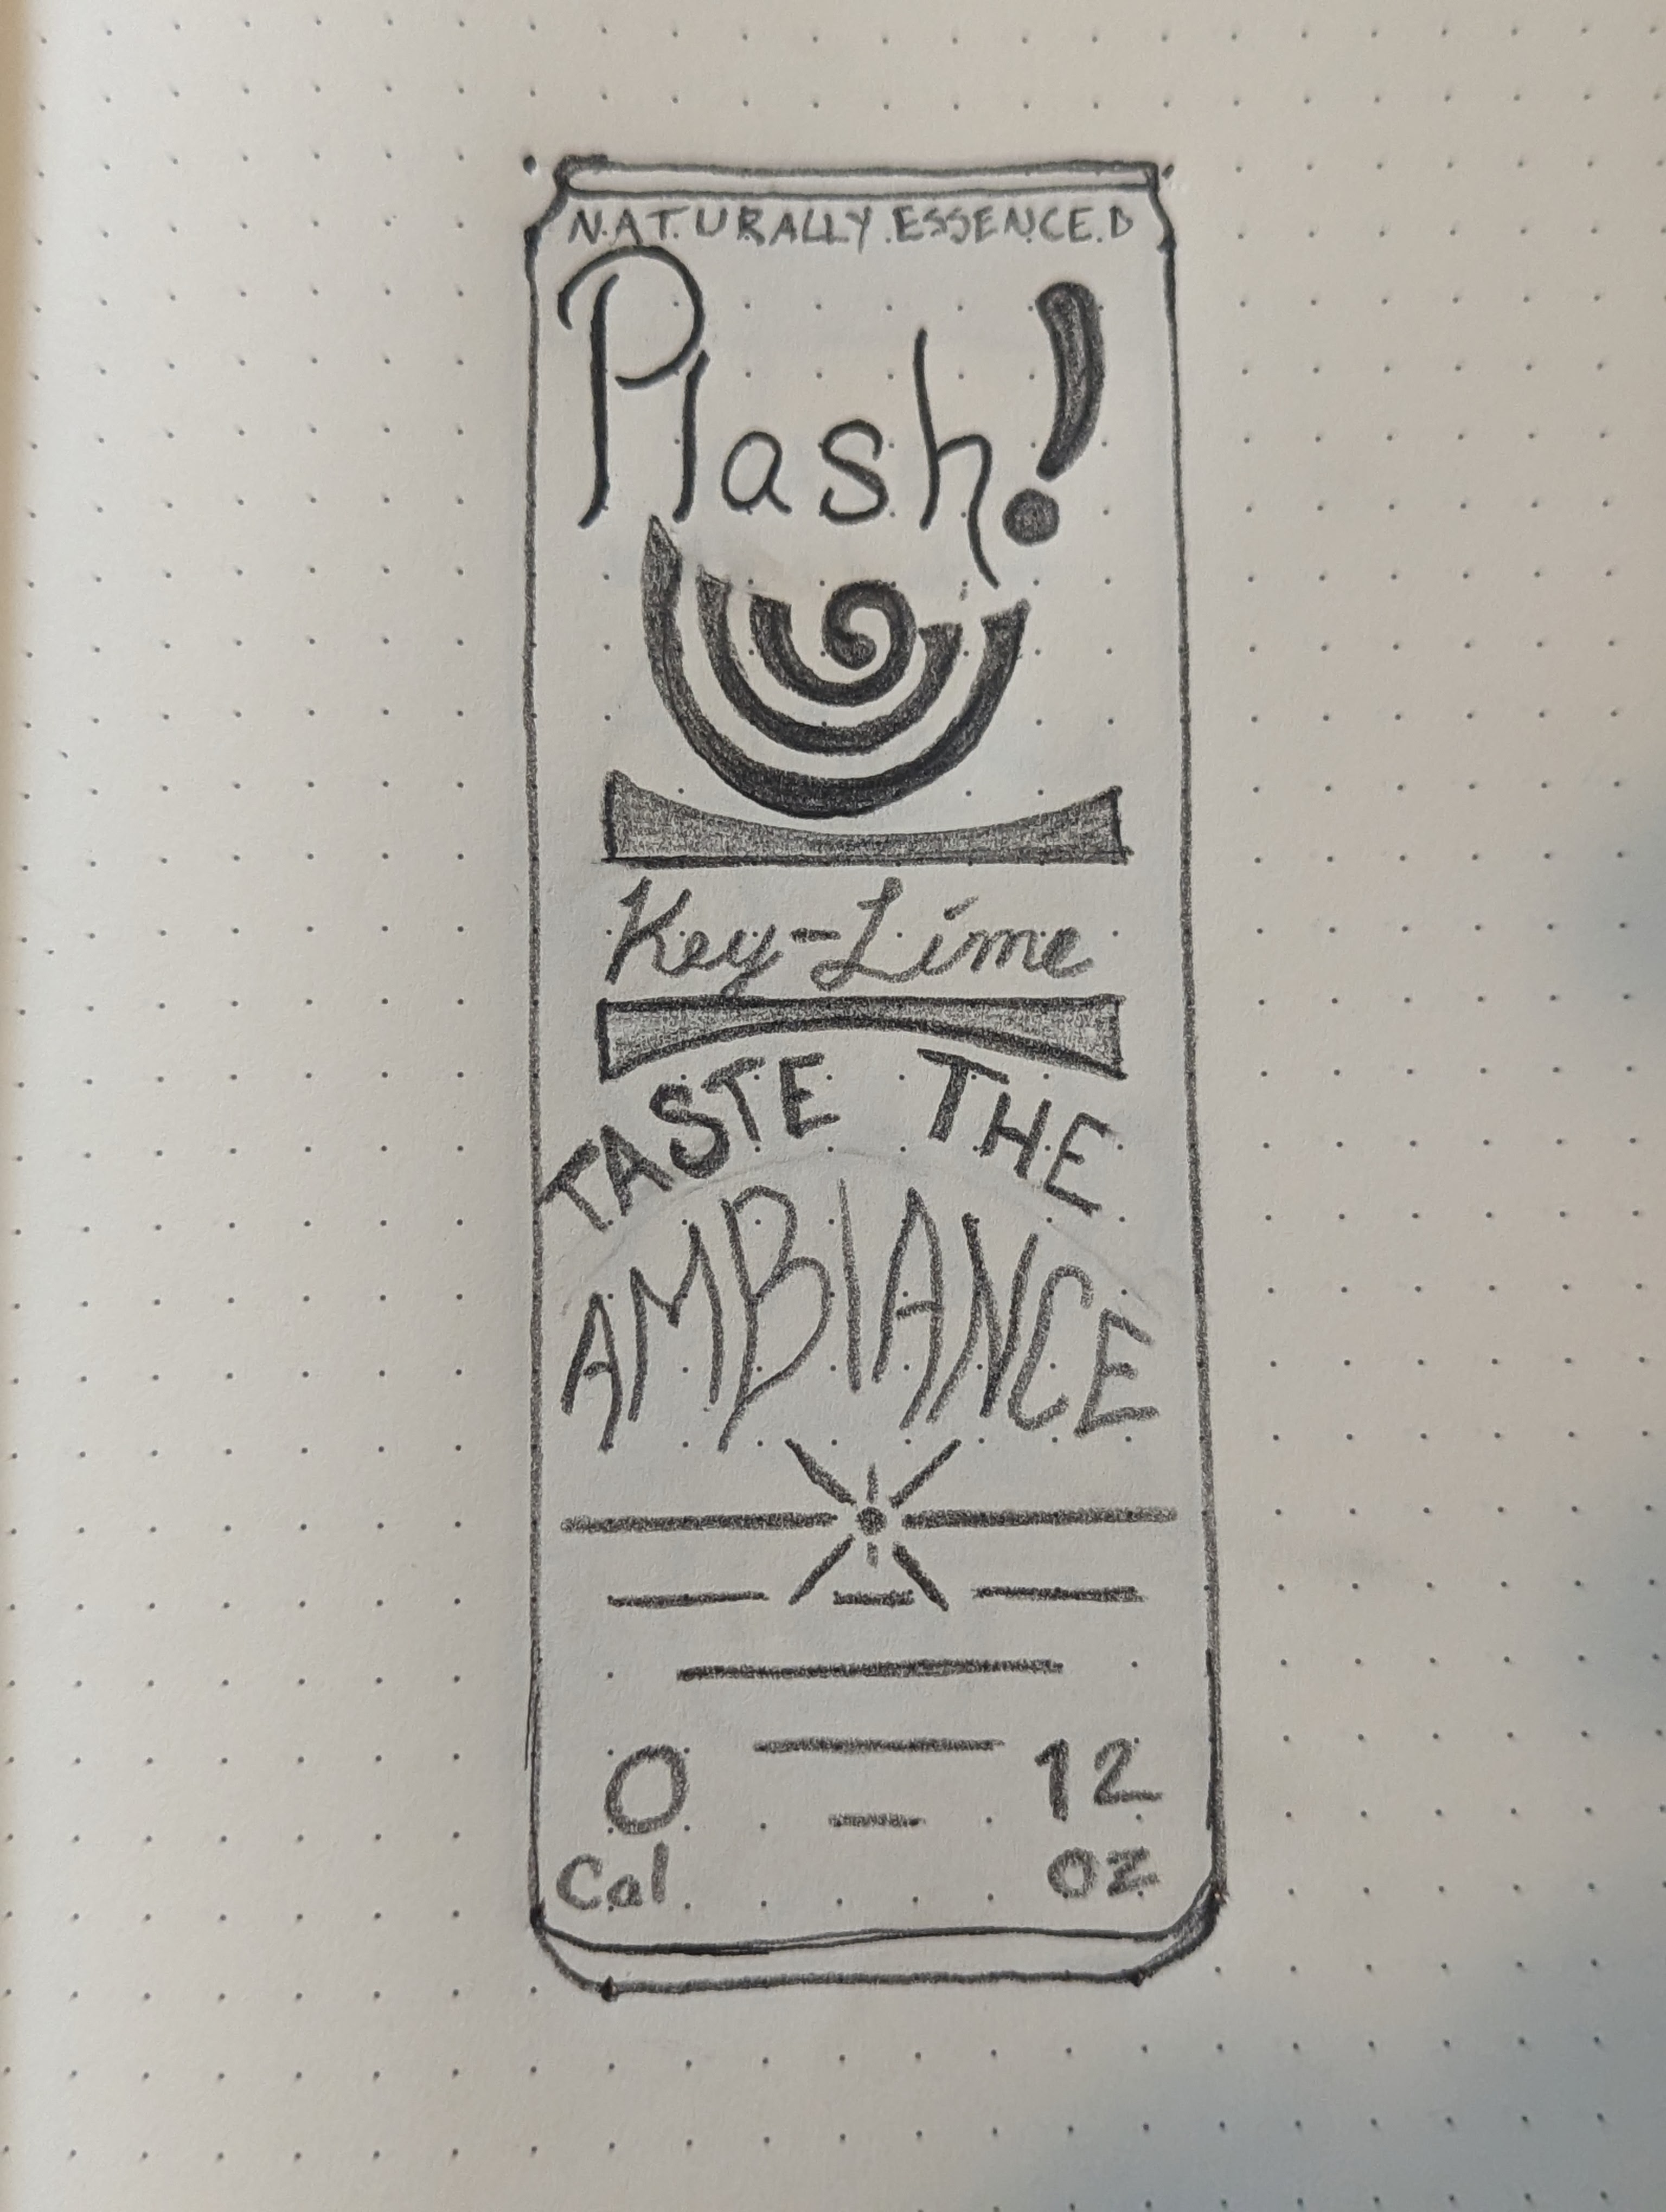 NATURALLY ESSENCED
Plash!
Key-Lime
TASTE THE
AMBIANCE
0
Cal
12
oz